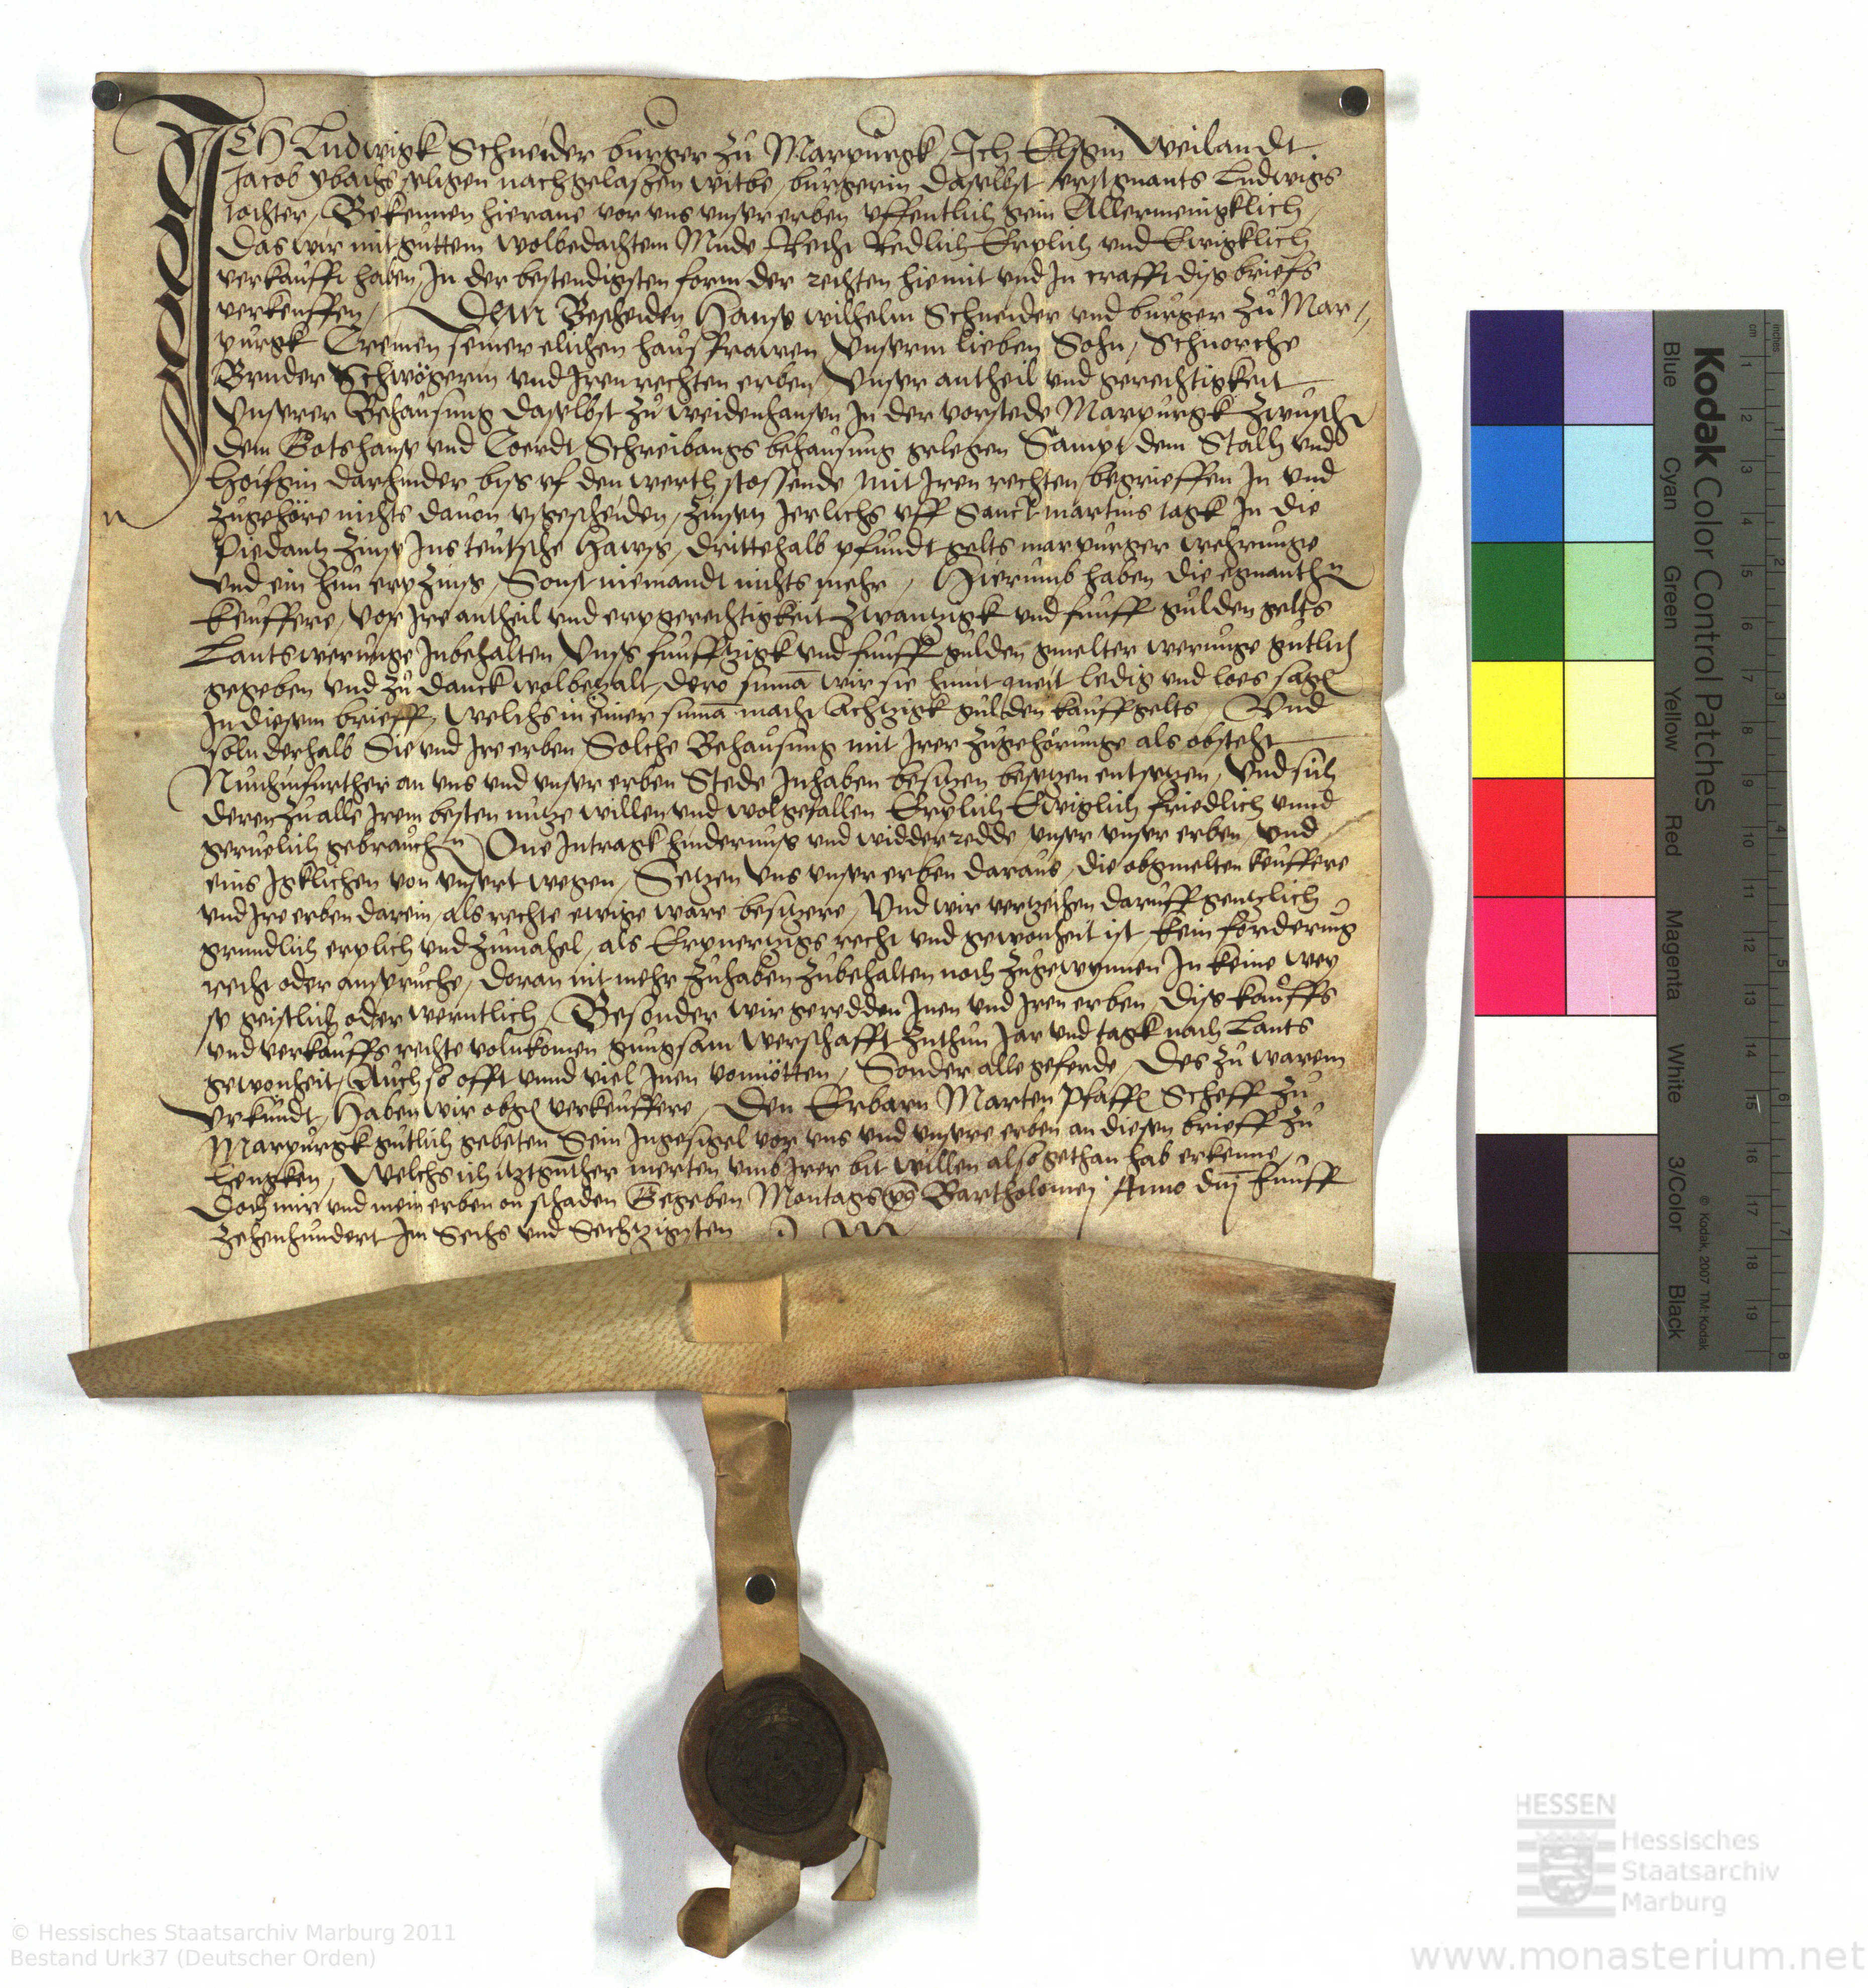 ICH Ludwigk Schneider burger zu Marpurgk, Ich Elsgin Weilandt
Jacob ybachs seligen nachgelaßen witbe, burgerin daselbst erstgnants Ludwigs
tochter, Bekennen hierane vor uns unser erben uffentlich gein Allermenigklich,
Das wir mit guttem wolbedachtem Mude Recht Redlich Erplich und Ewigklich
verkaufft haben, In der bestendigsten form der rechten hiemit und In crafft diß briefs
verkeuffen, Dem Bescheiden Hanß wilhelm Schneider und burger zu Mar-
purgk Cremen seiner elichen hausfrawen, Unserm lieben Sohn, Schnorche
Bruder Schwögerin und Iren rechten erben Unser antheil und gerechtigkeit
Unserer Behausung daselbst zu weidenhausen In der vorstede Marpurgk zwusch
dem Gotshauß und Coerdt Schreibangs behausung gelegen Sampt dem Stalh und
hoifgin darhinder biß uf den werth stossende mit Iren rechten begrieffen In und
zugehöre nichts davon ußgescheiden, zinsen Jerlichs uff Sanct martins tagk In die
Piedantz zinse Ins teutsche Hawß, drittehalb pfundt gelts marpurger wehrunge
und ein hun erpzinß, Sonst niemandt nichts mehr, Hierumb haben die egnanthn
keuffere, vor Ire antheil und erpgerechtigkeit zwantzigk und funff gulden gelts
Lantswerunge Inbehalten Unß funfftzigk und funff gulden gmelter werunge gutlich
gegeben und zu danck wolbezalt, dero suma wir sie himit queit ledig und loes sagen
In diesem brieff, Welchs in einer suma macht Achtzigk gulden kauffgelts, Und
soln derhalb Sie und Ire erben Solche Behausung mit Irer zugehörunge als obsteht
Nunhinfurther an uns und unser erben Stede Inhaben besitzen besetzen entsetzen, Und sich
deren zu alle Irem besten nutze willen und wolgefallen Erplich Ewiglich friedlich unnd
geruelich gebrauchn One Intragk hindernuß und widderredde unser unser erben und
eins Igklichen von unsert wegen, Setzen uns unser erben daraus, die obgmelten keuffere
und Ire erben darein, als rechte ewige ware besitzere, Und wir verzeihen daruff gentzlich
grundlich erplich und zumahel, als Erpvertzigs recht und gewonheit ist, kein forderung
recht oder anspruche, doran nit mehr zuhaben zubehalten noch zugewynnen In keine wey
se geistlich oder werntlich, Besonder wir geredden Inen und Iren erben diß kauffs
und verkauffs rechte volnkomen gnugsam Werschafft zuthun Jar und tagk nach Lants
gewonheit, Auch so offt unnd viel Inen vonnötten, Sonder alle geferde, Des zu warem
Urkundt, Haben wir obgen verkeuffere, Den Erbarn Marten Pfaffen Scheff zu
Marpurgk gutlich gebeten Sein Ingesigel vor uns und unsere erben an diesen brieff zu
hengken, Welchs ich itztgnther merten umb Irer bit willen also gethan hab erkenne,
Doch mir und mein erben on schaden Gegeben Montags Bartholomei Anno dni funff
zehenhundert Im Sechs und Sechtzigsten
Kodak Color Control Patches
Blue Cyan Green Yellow Red Magenta White 3/Color Black
© Kodak, 2007 TM: Kodak
cm 1 2 3 4 5 6 7 8 9 10 11 12 13 14 15 16 17 18 19
inches 1 2 3 4 5 6 7 8
HESSEN
Hessisches
Staatsarchiv
Marburg
© Hessisches Staatsarchiv Marburg 2011
Bestand Urk37 (Deutscher Orden)
www.monasterium.net